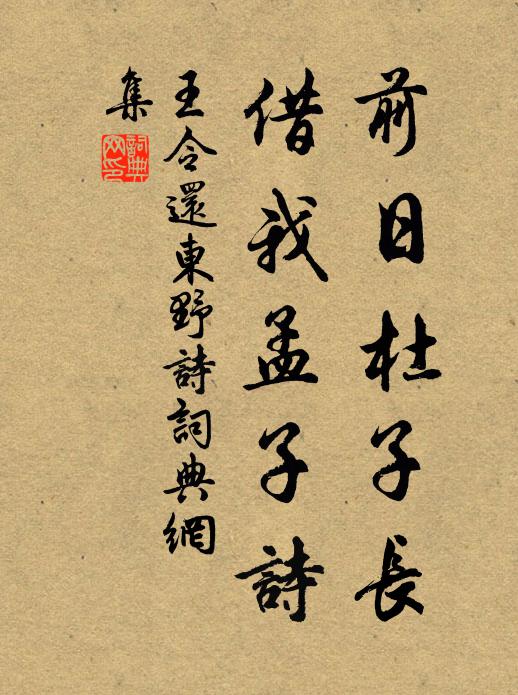 前日杜子長
借我孟子詩
王令還東野詩詞典網
集
詞典
網印